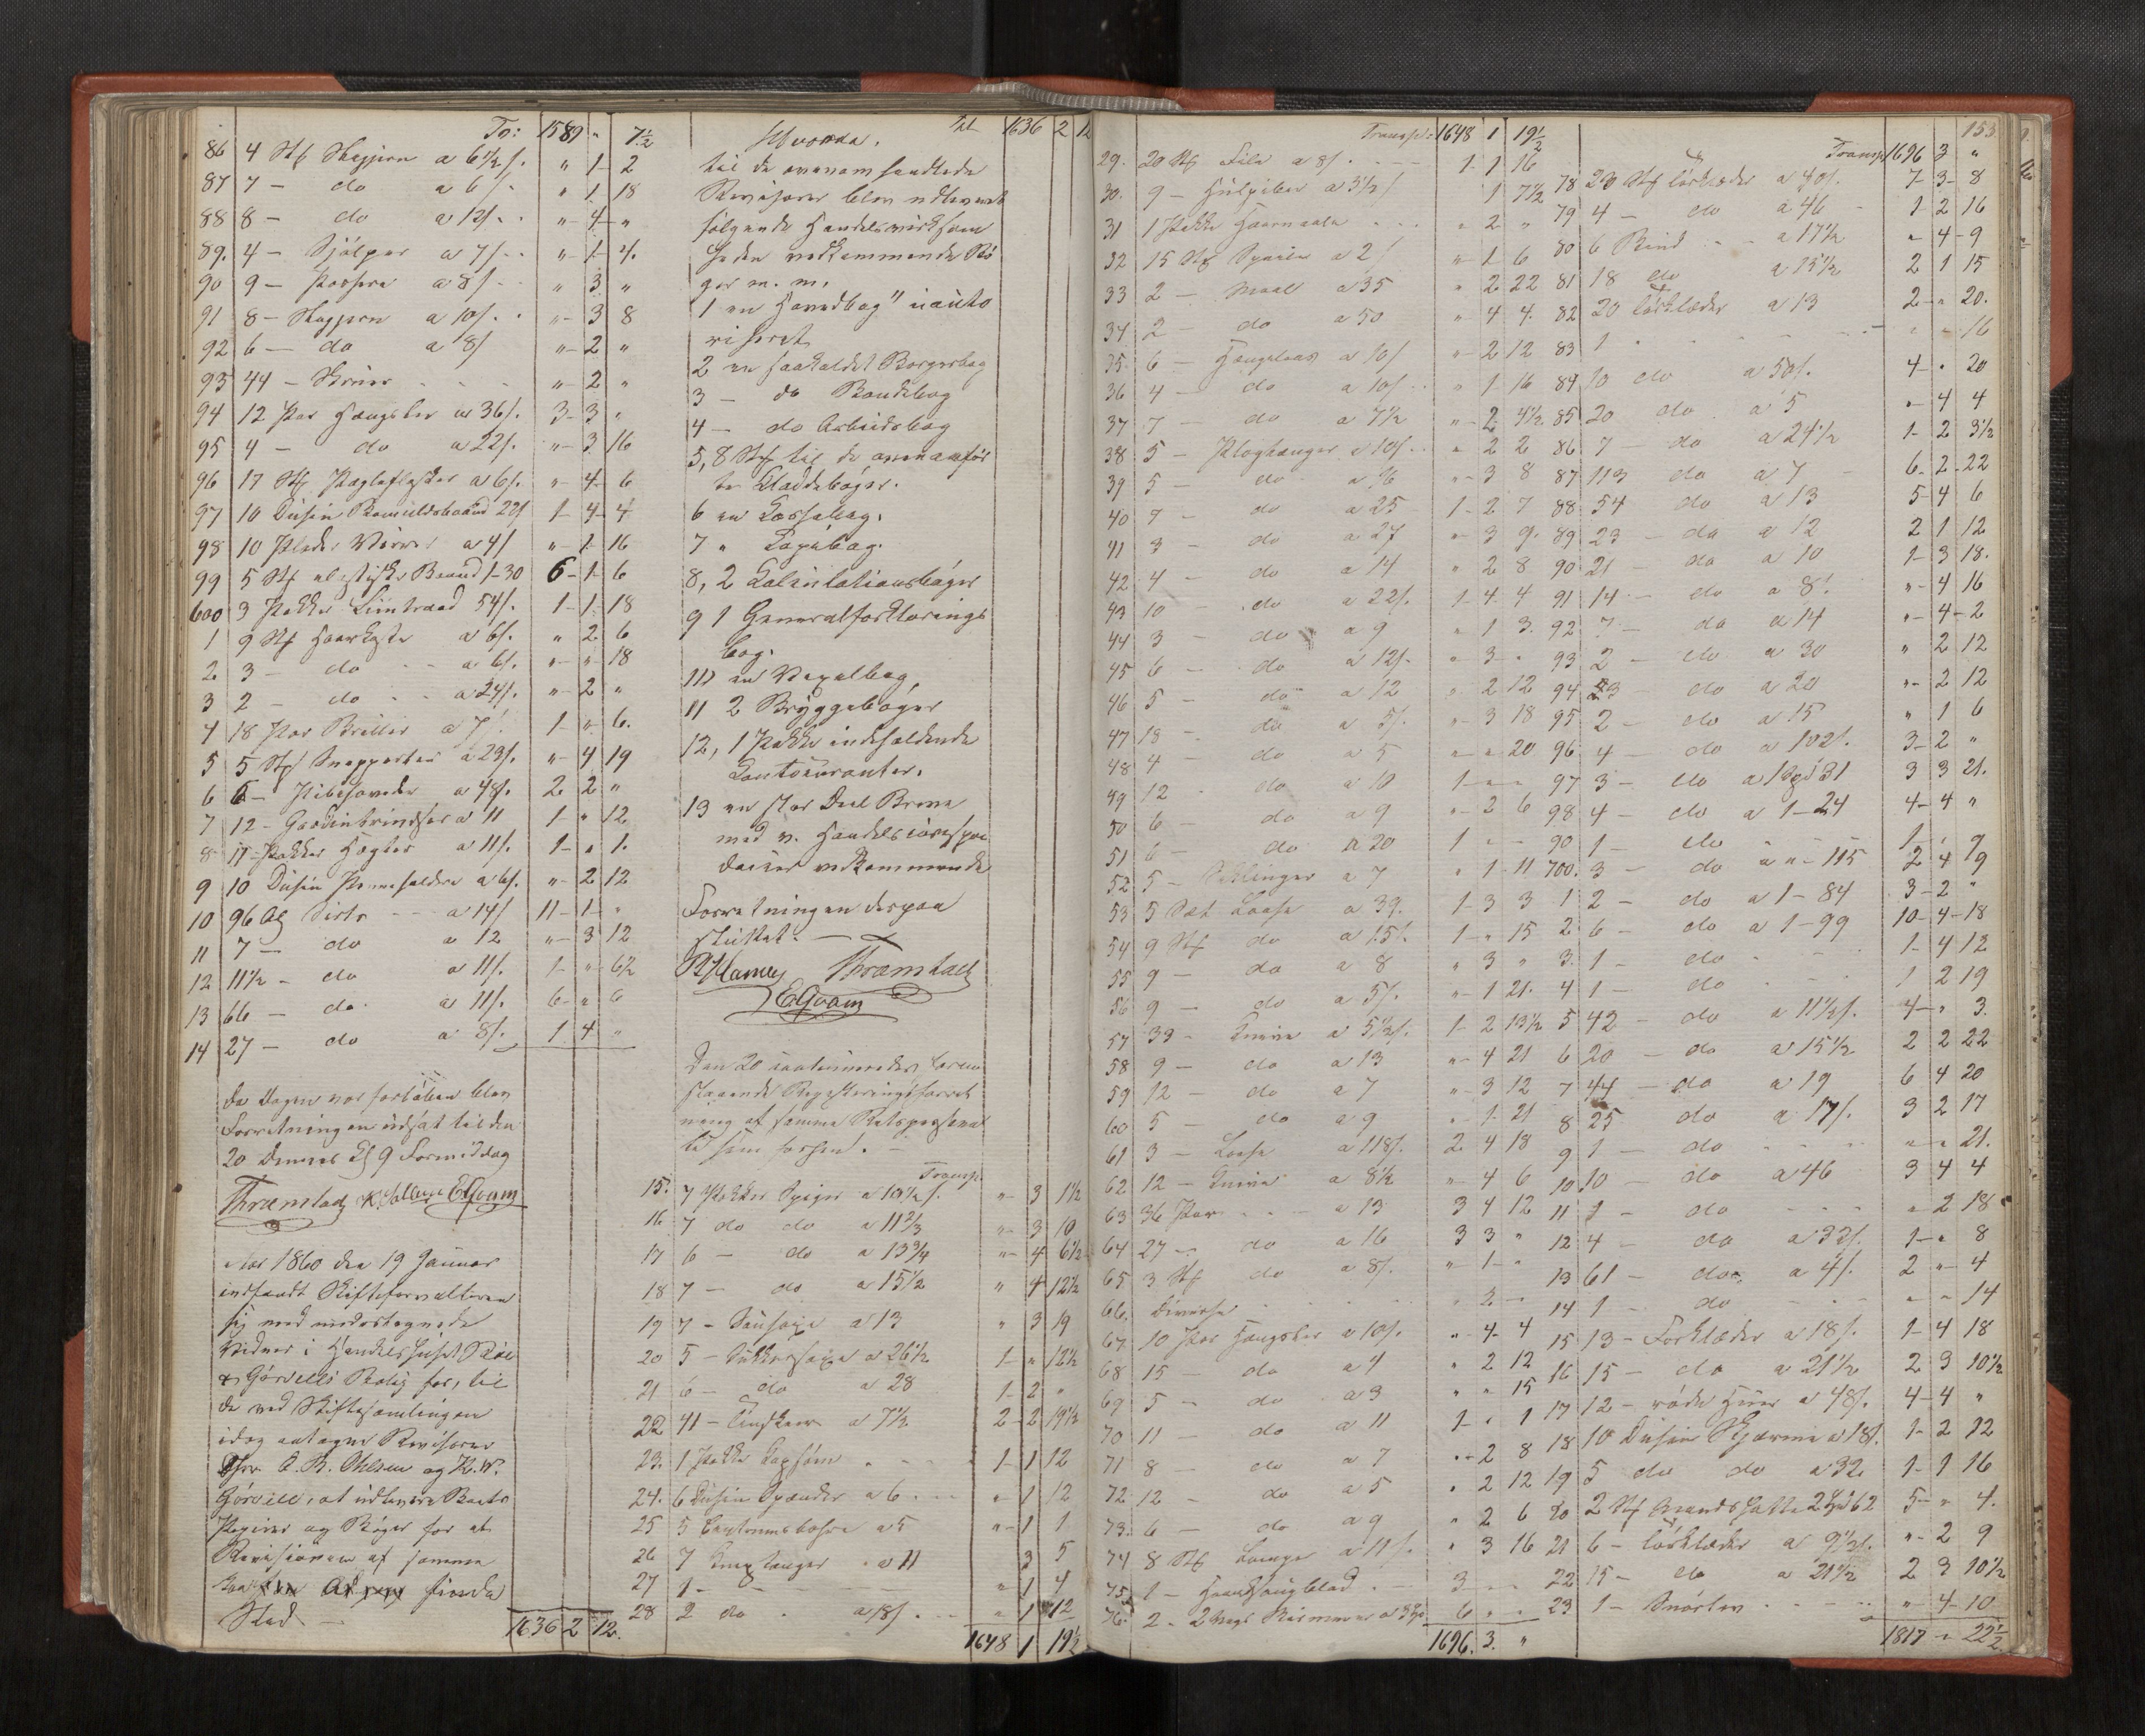 To: 1589 " 7½
86 4 Stk Stagjern a 6½ s. " 1 2
87 7 — do a 6 s. " 1 18
88 8 — do a 12 s. " 4 "
89. 4 — a 7 s. " 1 4.
90 9 — a 8 s. " 3 "
91 8 — a 10 s. " 3 8
92 6 — do a 8 s " 2 "
93 44 — " 2 "
94 12 Par Hængsler a 36 s. 3 3 "
95 4 — do a 22 s. " 3 16
96 17 Stk Pægleflasker a 6 s. " 4 6
97 10 Dusin Bomuldsbaand 22 s 1 4 4
98 10 a 4 s " 1 16
99 5 Stk elastiske Baand 1-30 6 1 6
600 3 Pakker Liintraad 54 s. 1 1 18
1 9 Stk Haarkoste a 6 s. " 2 6
2 3 — do a 6 s. " " 18
3 2 — do a 24 s. " 2 "
4 18 Par Briller a 7 s 1 " 6.
5 5 Stk a 23 s. " 4 19
6 6 — Pibehoveder a 48 s. 2 2 "
7 12 — Gardinbrindser a 11 1 " 12
8 11 — Pakker Hægter a 11 s. 1 " 1.
9 10 Dusin Penneholdere a 6 s. " 2 12
10 96 Al Sirts a 14 s 11 1 "
11 7 — do a 12 " 3 12
12 11½ — do a 11 s. 1 " 6½
13 66 — do a 11 s. 6 " 6
14 27 — do a 8 s. 1 4 "
Da Dagen var forløben blev
Forretningen udsat til den
20 Dennes Kl 9 Formiddag
Aar 1860 den 19 Januar
indfandt Skifteforvalteren
sig med undertegnede
Vidner i Handelshuset
& Gørvells Bolig for, til
de ved Skiftesamlingen
idag antagne Revisorer
Hr. O. B. Ohlsen og K. W.
Gørvell, at udlevere Boets
Papirer og Bøger for at
Revisionen af samme
kan finde
Sted —
1636 2 12.
Tr 1636 2 12
Hvorda.
til de ovennævnte
Revisorer blev udleveret
følgende Handelsvirksom
heden vedkommende Bø
ger m. m.
1 en Hovedbog uauto
riseret
2 en saakaldet Borgerbog
3 — do Bondebog
4 — do Arbeidsbog
5, 8 Stk til de ovenanfør
te Kladdebøger.
6 en Cassabog.
7 " Copibog.
8, 2 Calculationsbøger
9 1 Generalforklarings
bog.
10 en Vexelbog
11 2 Bryggebøger
12, 1 Pakke indeholdende
Contocuranter.
13 en stor Deel Breve
med v. Handelscorrespon
dancer vedkommende
Forretningen derpaa
sluttet.
Den 20 continueredes foran
staaende Registreringsforret
ning af samme Retspersonal
e som forhen. —
Transp
15. 7 Pakker Spiger a 10½ s. " 3 1½
16 7 do do a 11⅔ " 3 10
17 6 — do a 13¾ " 4 6½
18 7 — do a 15½ " 4 12½
19 7 — Sausaxe a 13 " 3 19
20 5 — Sukkersaxe a 26½ 1 " 12½
21 6 — do a 28 1 2 "
22 41 — a 7½ 2 2 19½
23. 1 Pakke 1 1 12
24. 6 Dusin Spænder a 6 " 1 12
25 5 Centrumsbohre a 5 " 1 1
26 7 Kniptænger a 11 3 5
27 1 — " 1 4
28 2 do a 18 s. " 1 12
1648 1 19½
Transp: 1648 1 19½
29. 20 Stk File a 8 s. 1 1 16
30. 9 — a 3½ s 1 7½
31 1 Pakke Haarnaale " 2 "
32 15 Stk a 2 s " 1 6
33 2 — Maal a 35 " 2 22
34 2 — do a 50 " 4 4.
35 6 — Hængelaas a 10 s " 2 12
36 4 — do a 10 s " 1 16
37 7 — do a 7½ " 2 4½
38 5 — a 10 s. " 2 2
39 5 — do a 16 " 3 8
40 7 — do a 25 1 2 7
41 3 — do a 27 " 3 9.
42 4 — do a 14 " 2 8
43 10 — do a 22 s. 1 4 4
44 3 — do a 9 " 1 3.
45 6 — do a 12 s. " 3 "
46 5 — do a 12 " 2 12
47 18 — do a 5 s. " 3 18
48 4 — do a 5 " " 20
49 12 — do a 10 1 " "
50 6 — do a 9 " 2 6
51 6 — do a 20 1 " "
52 5 — a 7 " 1 11
53 5 Sæt Laase a 39. 1 3 3
54 9 Stk do a 15 s. 1 " 15
55 9 — do a 8 " 3 "
56 9 — do a 5 s. " 1 21.
57 39 — Knive a 5½ s. 1 2 13½
58 9 — do a 13 " 4 21
59 12 — do a 7 " 3 12
60 5 — do a 9 " 1 21
61 3 — Laase a 118 s. 2 4 18
62 12 — Knive a 8½ " 4 6
63 36 Par a 13 3 4 12
64 27 — do a 16 3 3 "
65 3 Stk do a 8 s. " 1 "
66. Diverse " 2 "
67 10 Par Hængsler a 10 s. " 4 4
68 15 — do a 4 " 2 12
69 5 — do a 3 " " 15
70 11 — do a 11 1 " 1
71 8 — do a 7 " 2 8
72 12 — do a 5 " 2 12
73. 6 — do a 9 " 2 6
74 8 Stk a 11 s. " 3 16
75. 1 — Haandsaugblad 3 " "
76. 2 — 6 " "
1696. 3. "
153
Transp 1696 3 "
78 20 Stk Tørklæder a 40 s. 7 3 8
79 4 — do a 46 1 2 16
80 6 Bind a 17½ " 4 9
81 18 do a 15½ 2 1 15
82 20 Tørklæder a 13 2 " 20.
83 1 " " " 16
84 10 do a 50 s. 4 " 20
85 20 do a 5 " 4 4
86 7 — do a 24½ 1 2 3½
87 113 do a 7 6 2 22
88 54 do a 13 5 4 6
89 23 — do a 12 2 1 12
90 21 — do a 10 1 3 18.
91 14 — do a 8 s " 4 16
92 7 — do a 14 " 4 2
93 2 — do a 30 " 2 12
94 3 — do a 20 " 2 12
95 2 — do a 15 " 1 6
96 4 — do a 102 s. 3 2 "
97 3 — do a 1 Spd 31 3 3 21.
98 4 — do a 1-24 4 4 "
99 1 — do 1 " 9
700. 3 — do a " - 115 2 4 9
1 2 — do a 1-84 3 2 "
2 6 — do a 1-99 10 4 18
3. 1 — do 1 4 12
4 1 — do 1 2 19
5 42 — do a 11½ s. 4 " 3.
6 20 — do a 15½ 2 2 22
7 44 — do a 19 6 4 20
8 25 do a 17 s. 3 2 17
9 1 — do " " 21.
10 10 — do a 46 3 4 4
11 1 — do " 2 18
12 4 — do a 32 s. 1 " 8
13 61 — do a 4 s. 2 " 4
14 1 — do " " 14
15 13 — Forklæder a 18 s. 1 4 18
16 15 — do a 21½ 2 3 10½
17 12 — røde Huer a 48 s. 4 4 "
18 10 Dusin Skjærme a 18 s. 1 2 12
19 5 do do a 32 1 1 16
20 2 Stk Mandshatte 2 Spd 62 5 " 4.
21 6 — Tørklæder a 9½ s. " 2 9
22 15 — do a 21½ 2 3 10½
23 1 — " 4 10
1817 " 22½